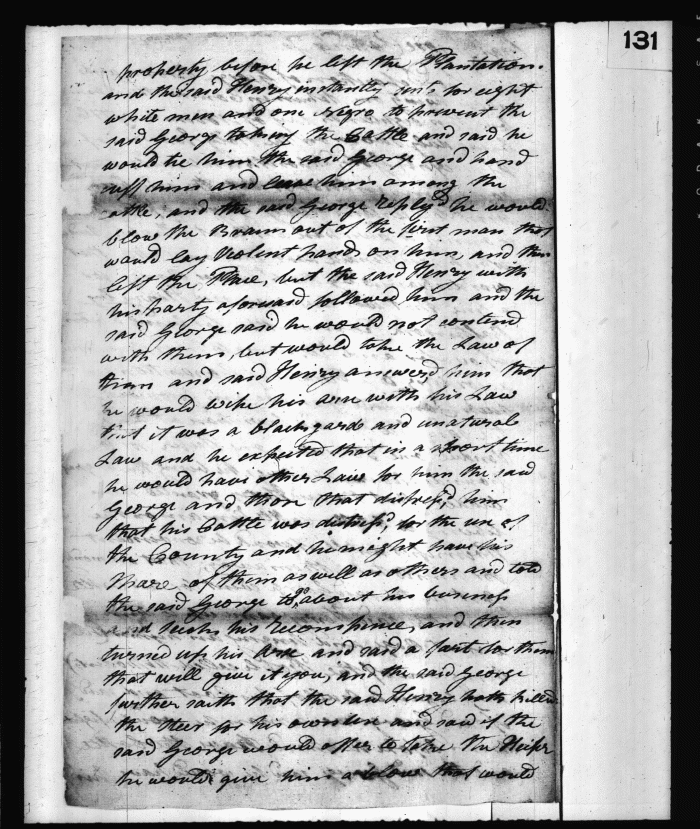 131
property before he left the Plantation.
and the said Henry instantly sent for eight
white men and one Negro to prevent the
said George takeing the Cattle and said he
would tie him the said George and hand
cuff him and leave him among the
attle, and the said George reply'd he would
blow the Brains out of the first man that
would lay Violent hands on him, and then
left the Place, but the said Henry with
his party aforesaid followed him and the
said George said he would not contend
with them, but would take the Law of
them and said Henry answered him that
he would wipe his arse with his Law
that it was a blackgard and unatural
Law and he expected that in a short time
he would have other Law for him the said
George and those that distress'd him
that his Cattle was distress'd for the use of
the County and he might have his
Share of them as well as others and told
the said George to go about his business
and seeks his recompence, and then
turned up his Arse and said a fart for them
that will give it you, and the said George
further saith that the said Henry hath killed
the Steer for his own use and said if the
said George would offer to take the Heifer
he would give him a blow that would